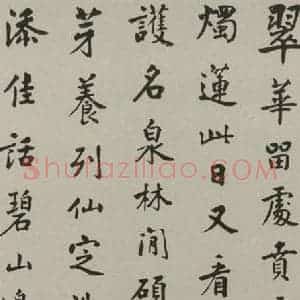 翠華留處賁
燭蓮此日又看
護名泉林閒碩
芽養列仙定
添佳話碧山
Shufaziliao.com